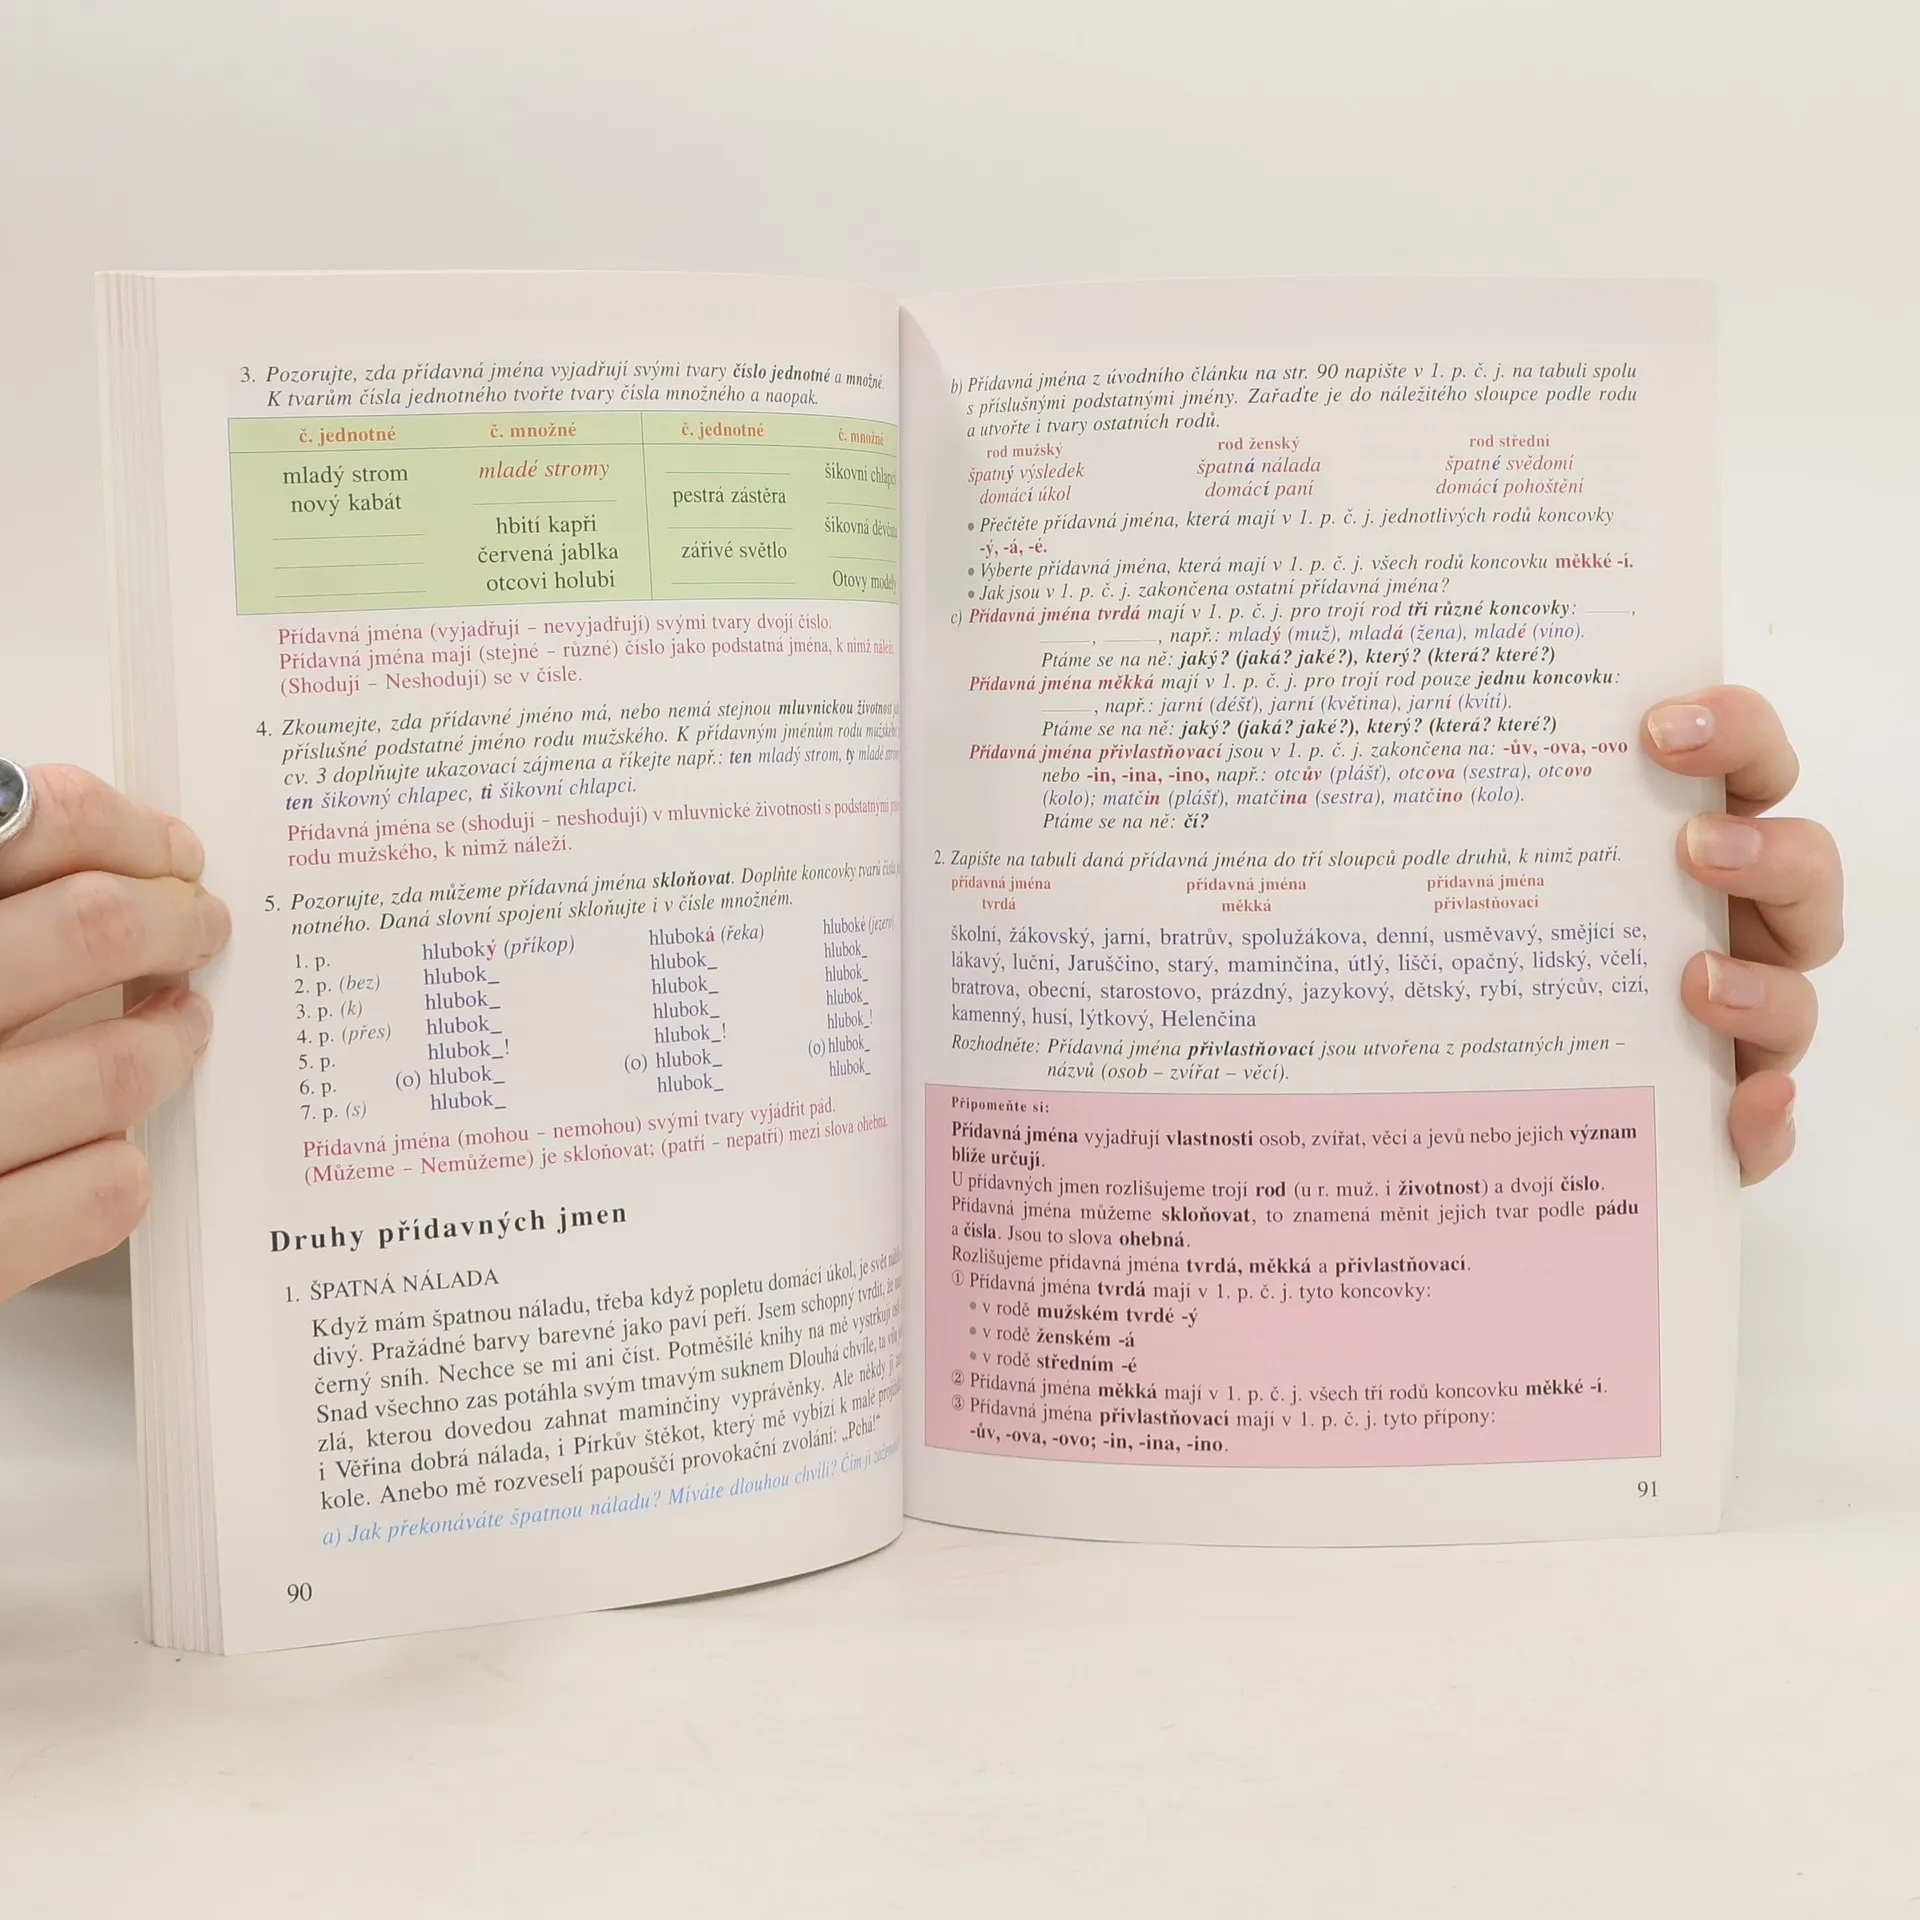 3. Pozorujte, zda přídavná jména vyjadřují svými tvary číslo jednotné a množné.
K tvarům čísla jednotného tvořte tvary čísla množného a naopak.
č. jednotné č. množné č. jednotné č. množné
mladý strom mladé stromy ________ šikovní chlapci
nový kabát ________ pestrá zástěra ________
________ hbití kapři ________ šikovná děvčata
________ červená jablka zářivé světlo ________
________ otcovi holubi ________ Otovy modely
Přídavná jména (vyjadřují – nevyjadřují) svými tvary dvojí číslo.
Přídavná jména mají (stejné – různé) číslo jako podstatná jména, k nimž náleží.
(Shodují – Neshodují) se v čísle.
4. Zkoumejte, zda přídavné jméno má, nebo nemá stejnou mluvnickou životnost
příslušné podstatné jméno rodu mužského. K přídavným jménům rodu mužského
cv. 3 doplňujte ukazovací zájmena a říkejte např.: ten mladý strom, ty mladé
ten šikovný chlapec, ti šikovní chlapci.
Přídavná jména se (shodují – neshodují) v mluvnické životnosti s podstatnými
rodu mužského, k nimž náleží.
5. Pozorujte, zda můžeme přídavná jména skloňovat. Doplňte koncovky tvarů
notného. Daná slovní spojení skloňujte i v čísle množném.
1. p. hluboký (příkop) hluboká (řeka) hluboké (jezero)
2. p. (bez) hlubok_ hlubok_ hlubok_
3. p. (k) hlubok_ hlubok_ hlubok_
4. p. (přes) hlubok_ hlubok_ hlubok_
5. p. hlubok_! hlubok_! hlubok_!
6. p. (o) hlubok_ (o) hlubok_ (o) hlubok_
7. p. (s) hlubok_ hlubok_ hlubok_
Přídavná jména (mohou – nemohou) svými tvary vyjádřit pád.
(Můžeme – Nemůžeme) je skloňovat; (patří – nepatří) mezi slova ohebná.
Druhy přídavných jmen
1. ŠPATNÁ NÁLADA
Když mám špatnou náladu, třeba když popletu domácí úkol, je svět
divý. Pražádné barvy barevné jako paví peří. Jsem schopný tvrdit, že
černý sníh. Nechce se mi ani číst. Potměšilé knihy na mě vystrkují
Snad všechno zas potáhla svým tmavým suknem Dlouhá chvíle, ta
zlá, kterou dovedou zahnat maminčiny vyprávěnky. Ale někdy ji
i Věřina dobrá nálada, i Pírkův štěkot, který mě vybízí k malé
kole. Anebo mě rozveselí papouščí provokační zvolání: „Pchá!“
a) Jak překonáváte špatnou náladu? Míváte dlouhou chvíli? Čím ji
90
b) Přídavná jména z úvodního článku na str. 90 napište v 1. p. č. j. na tabuli spolu
s příslušnými podstatnými jmény. Zařaďte je do náležitého sloupce podle rodu
a utvořte i tvary ostatních rodů.
rod mužský rod ženský rod střední
špatný výsledek špatná nálada špatné svědomí
domácí úkol domácí paní domácí pohoštění
• Přečtěte přídavná jména, která mají v 1. p. č. j. jednotlivých rodů koncovky
-ý, -á, -é.
• Vyberte přídavná jména, která mají v 1. p. č. j. všech rodů koncovku měkké -í.
• Jak jsou v 1. p. č. j. zakončena ostatní přídavná jména?
c) Přídavná jména tvrdá mají v 1. p. č. j. pro trojí rod tři různé koncovky: ____,
____, ____, např.: mladý (muž), mladá (žena), mladé (víno).
Ptáme se na ně: jaký? (jaká? jaké?), který? (která? které?)
Přídavná jména měkká mají v 1. p. č. j. pro trojí rod pouze jednu koncovku:
____, např.: jarní (déšť), jarní (květina), jarní (kvítí).
Ptáme se na ně: jaký? (jaká? jaké?), který? (která? které?)
Přídavná jména přivlastňovací jsou v 1. p. č. j. zakončena na: -ův, -ova, -ovo
nebo -in, -ina, -ino, např.: otcův (plášť), otcova (sestra), otcovo
(kolo); matčin (plášť), matčina (sestra), matčino (kolo).
Ptáme se na ně: čí?
2. Zapište na tabuli daná přídavná jména do tří sloupců podle druhů, k nimž patří.
přídavná jména přídavná jména přídavná jména
tvrdá měkká přivlastňovací
školní, žákovský, jarní, bratrův, spolužákova, denní, usměvavý, smějící se,
lákavý, luční, Jaruščino, starý, maminčina, útlý, liščí, opačný, lidský, včelí,
bratrova, obecní, starostovo, prázdný, jazykový, dětský, rybí, strýcův, cizí,
kamenný, husí, lýtkový, Helenčina
Rozhodněte: Přídavná jména přivlastňovací jsou utvořena z podstatných jmen –
názvů (osob – zvířat – věcí).
Připomeňte si:
Přídavná jména vyjadřují vlastnosti osob, zvířat, věcí a jevů nebo jejich význam
blíže určují.
U přídavných jmen rozlišujeme trojí rod (u r. muž. i životnost) a dvojí číslo.
Přídavná jména můžeme skloňovat, to znamená měnit jejich tvar podle pádu
a čísla. Jsou to slova ohebná.
Rozlišujeme přídavná jména tvrdá, měkká a přivlastňovací.
① Přídavná jména tvrdá mají v 1. p. č. j. tyto koncovky:
• v rodě mužském tvrdé -ý
• v rodě ženském -á
• v rodě středním -é
② Přídavná jména měkká mají v 1. p. č. j. všech tří rodů koncovku měkké -í.
③ Přídavná jména přivlastňovací mají v 1. p. č. j. tyto přípony:
-ův, -ova, -ovo; -in, -ina, -ino.
91